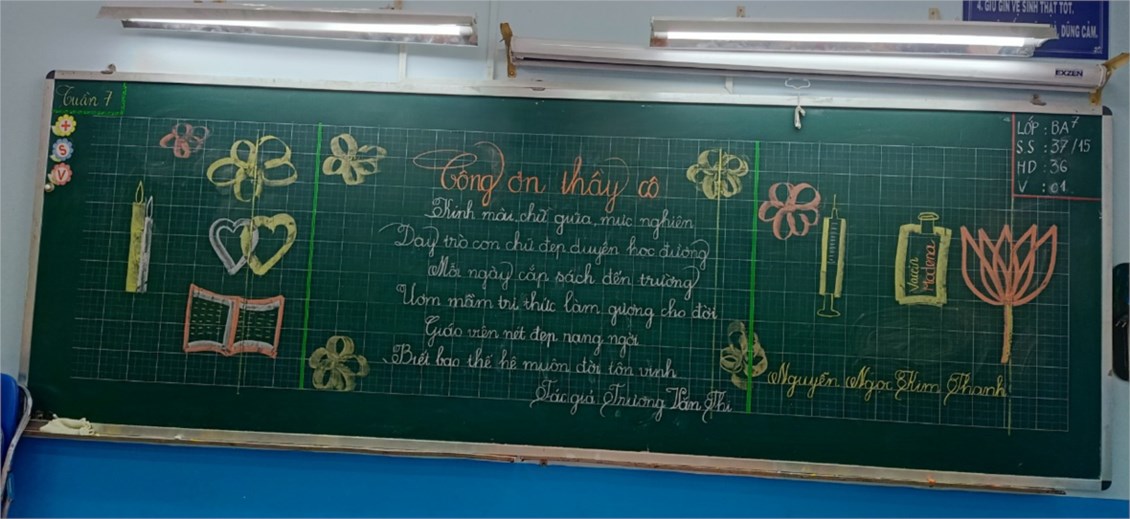 4. GIỮ GÌN VỆ SINH THẬT TỐT.
DŨNG CẢM.
EXZEN
Tuần 7
+
S
V
LỚP : BA7
S.S : 37/15
HD : 36
V : 01
Công ơn thầy cô
Kính màu chữ giữa mực nghiên
Dạy trò con chữ đẹp duyên học đường
Mỗi ngày cắp sách đến trường
Ươm mầm tri thức làm gương cho đời
Giáo viên nét đẹp rạng ngời
Biết bao thế hệ muôn đời tôn vinh
Tác giả Trương Văn Thi
Vacxin
Moderna
Nguyễn Ngọc Kim Thanh